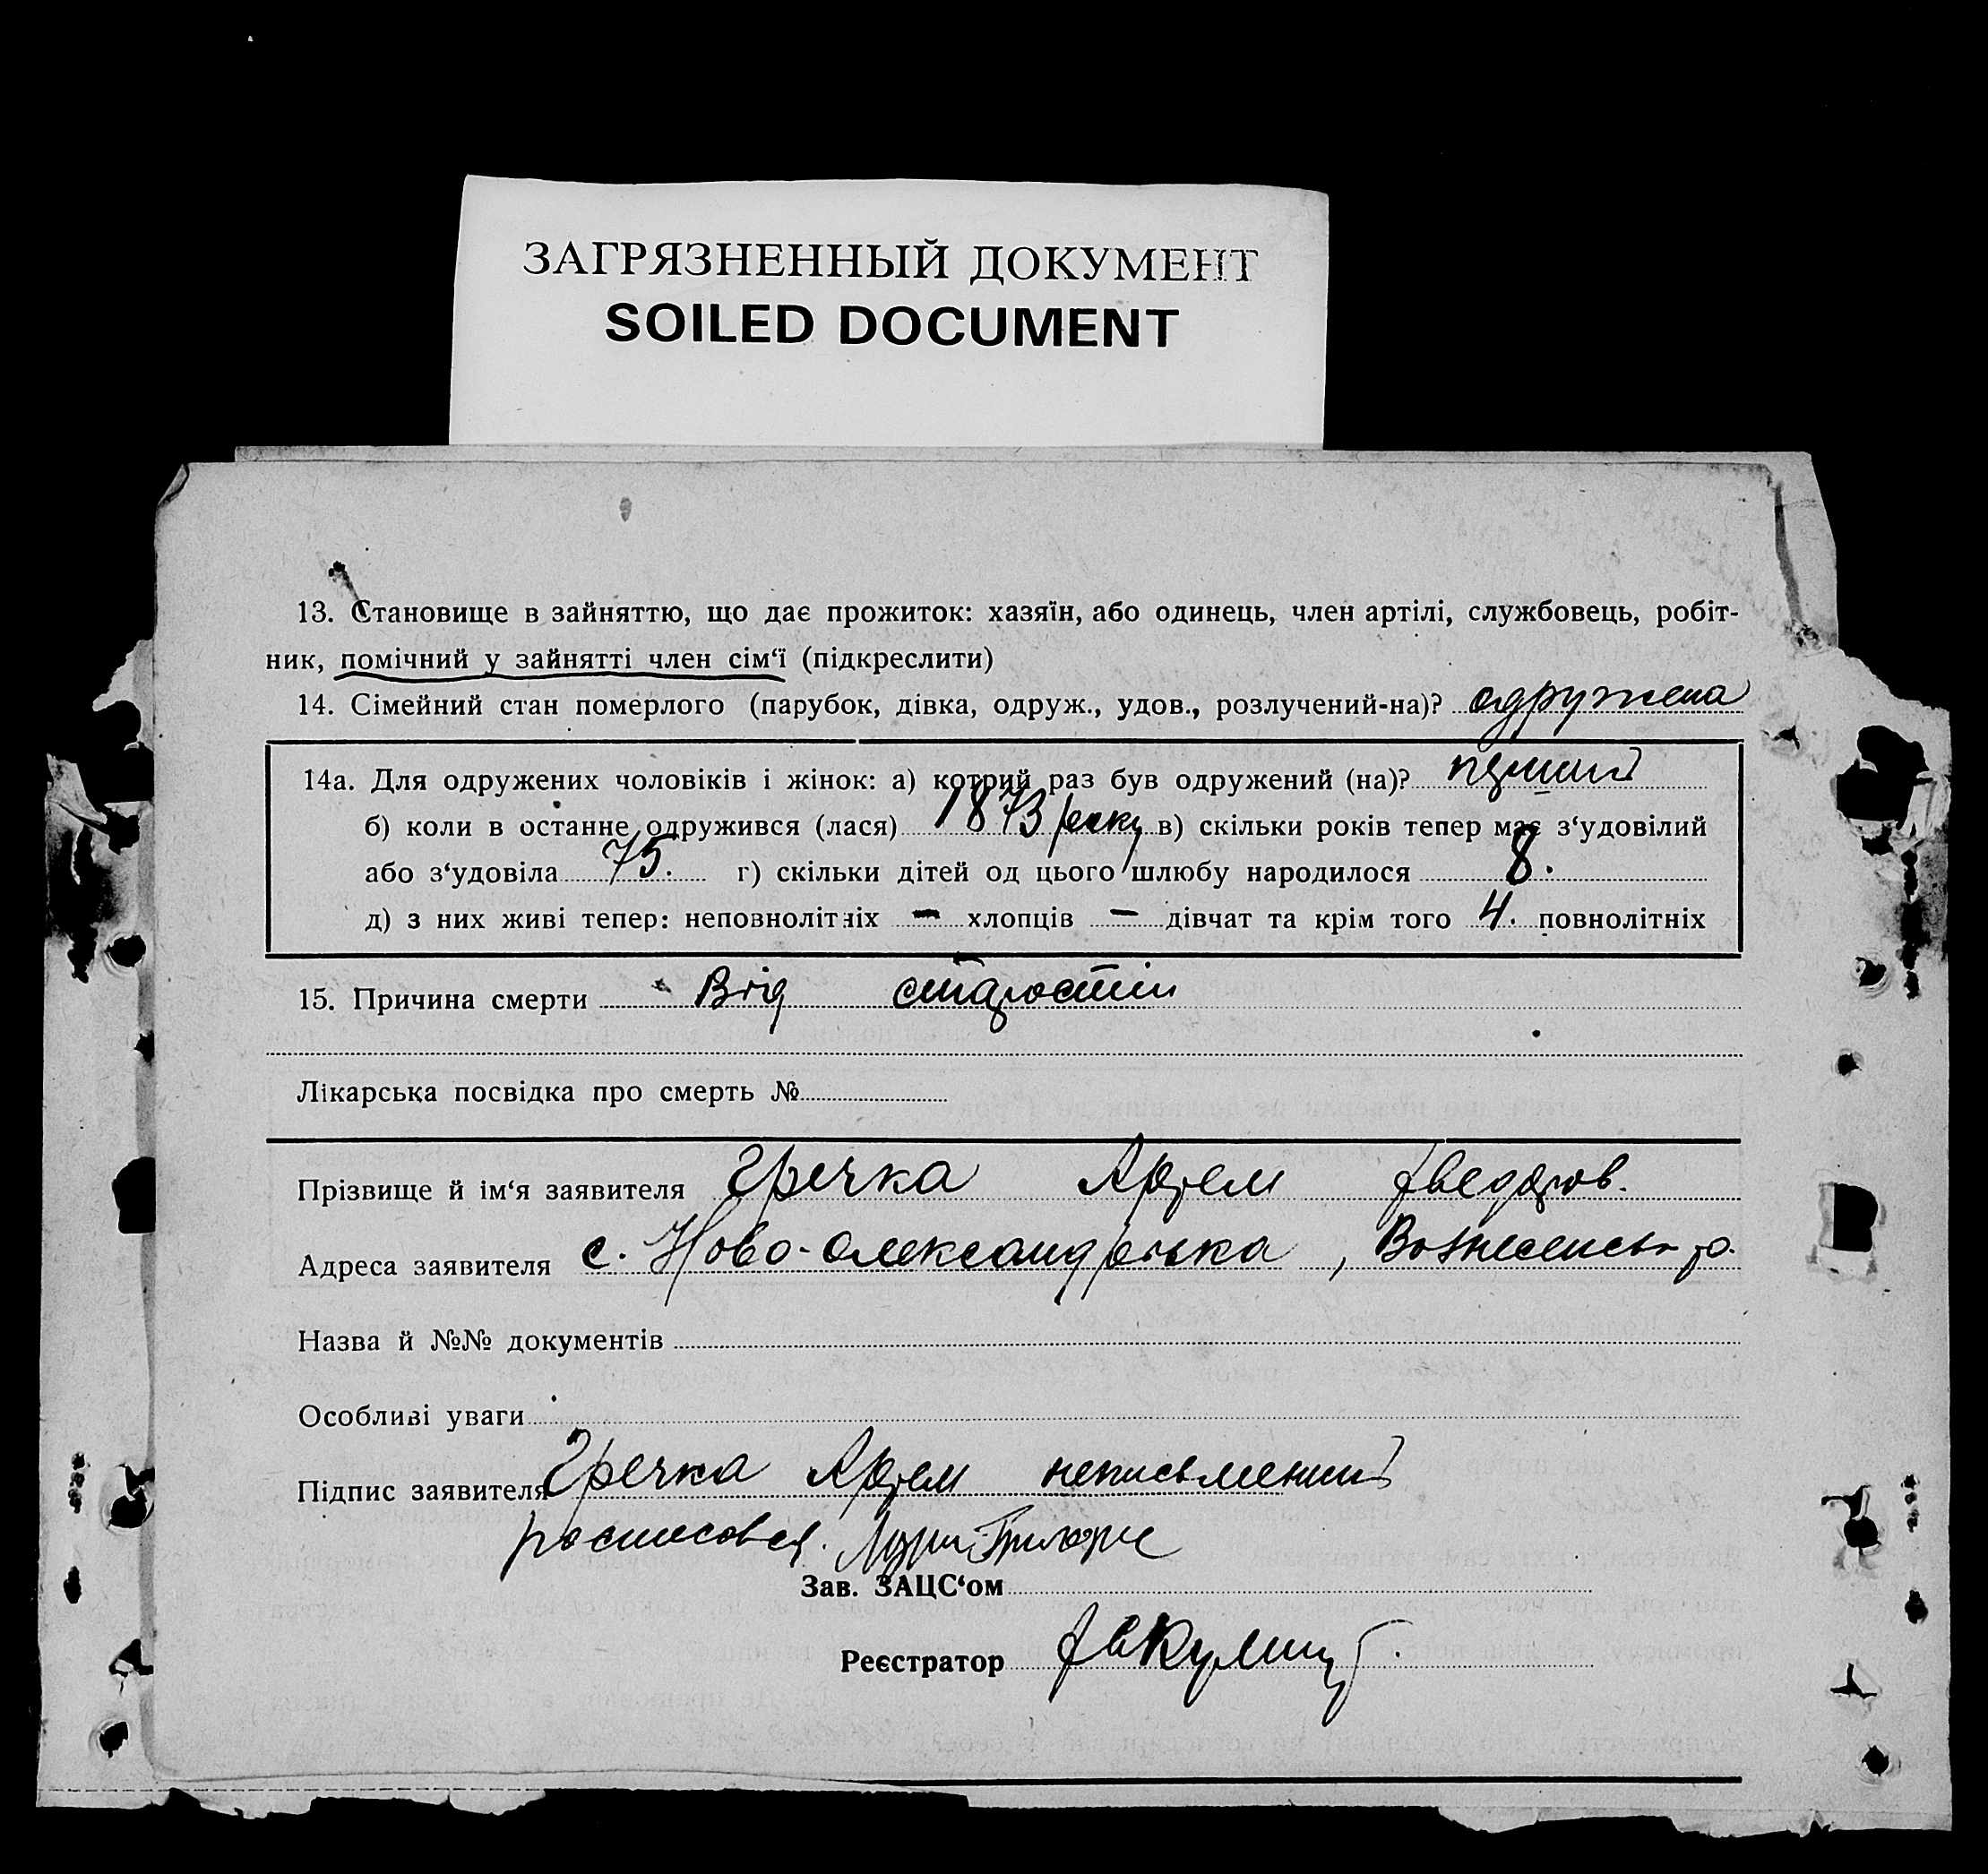 ЗАГРЯЗНЕННЫЙ ДОКУМЕНТ
SOILED DOCUMENT
13. Становище в зайняттю, що дає прожиток: хазяїн, або одинець, член артілі, службовець, робіт-
ник, помічний у зайнятті член сім‘ї (підкреслити)
14. Сімейний стан померлого (парубок, дівка, одруж., удов., розлучений-на)? одружена
14а. Для одружених чоловіків і жінок: а) котрий раз був одружений (на)?
б) коли в останнє одружився (лася) 1873 року в) скільки років тепер має з‘удовілий
або з‘удовіла 75. г) скільки дітей од цього шлюбу народилося 8.
д) з них живі тепер: неповнолітніх — хлопців — дівчат та крім того 4. повнолітніх
15. Причина смерти Від старости
Лікарська посвідка про смерть №
Прізвище й ім‘я заявителя Гречка Артем
Адреса заявителя с. Ново-Олександрівка, Вознесенськ р.
Назва й №№ документів
Особливі уваги
Підпис заявителя Гречка Артем неписьменний
росписовся.
Зав. ЗАЦС‘ом
Реєстратор